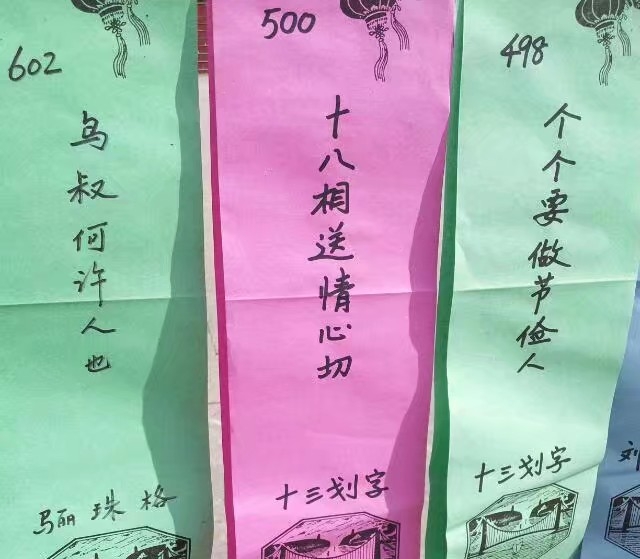 602
乌叔何许人也
骊珠格
500
十八相送情心切
十三划字
498
个个要做节俭人
十三划字
刘